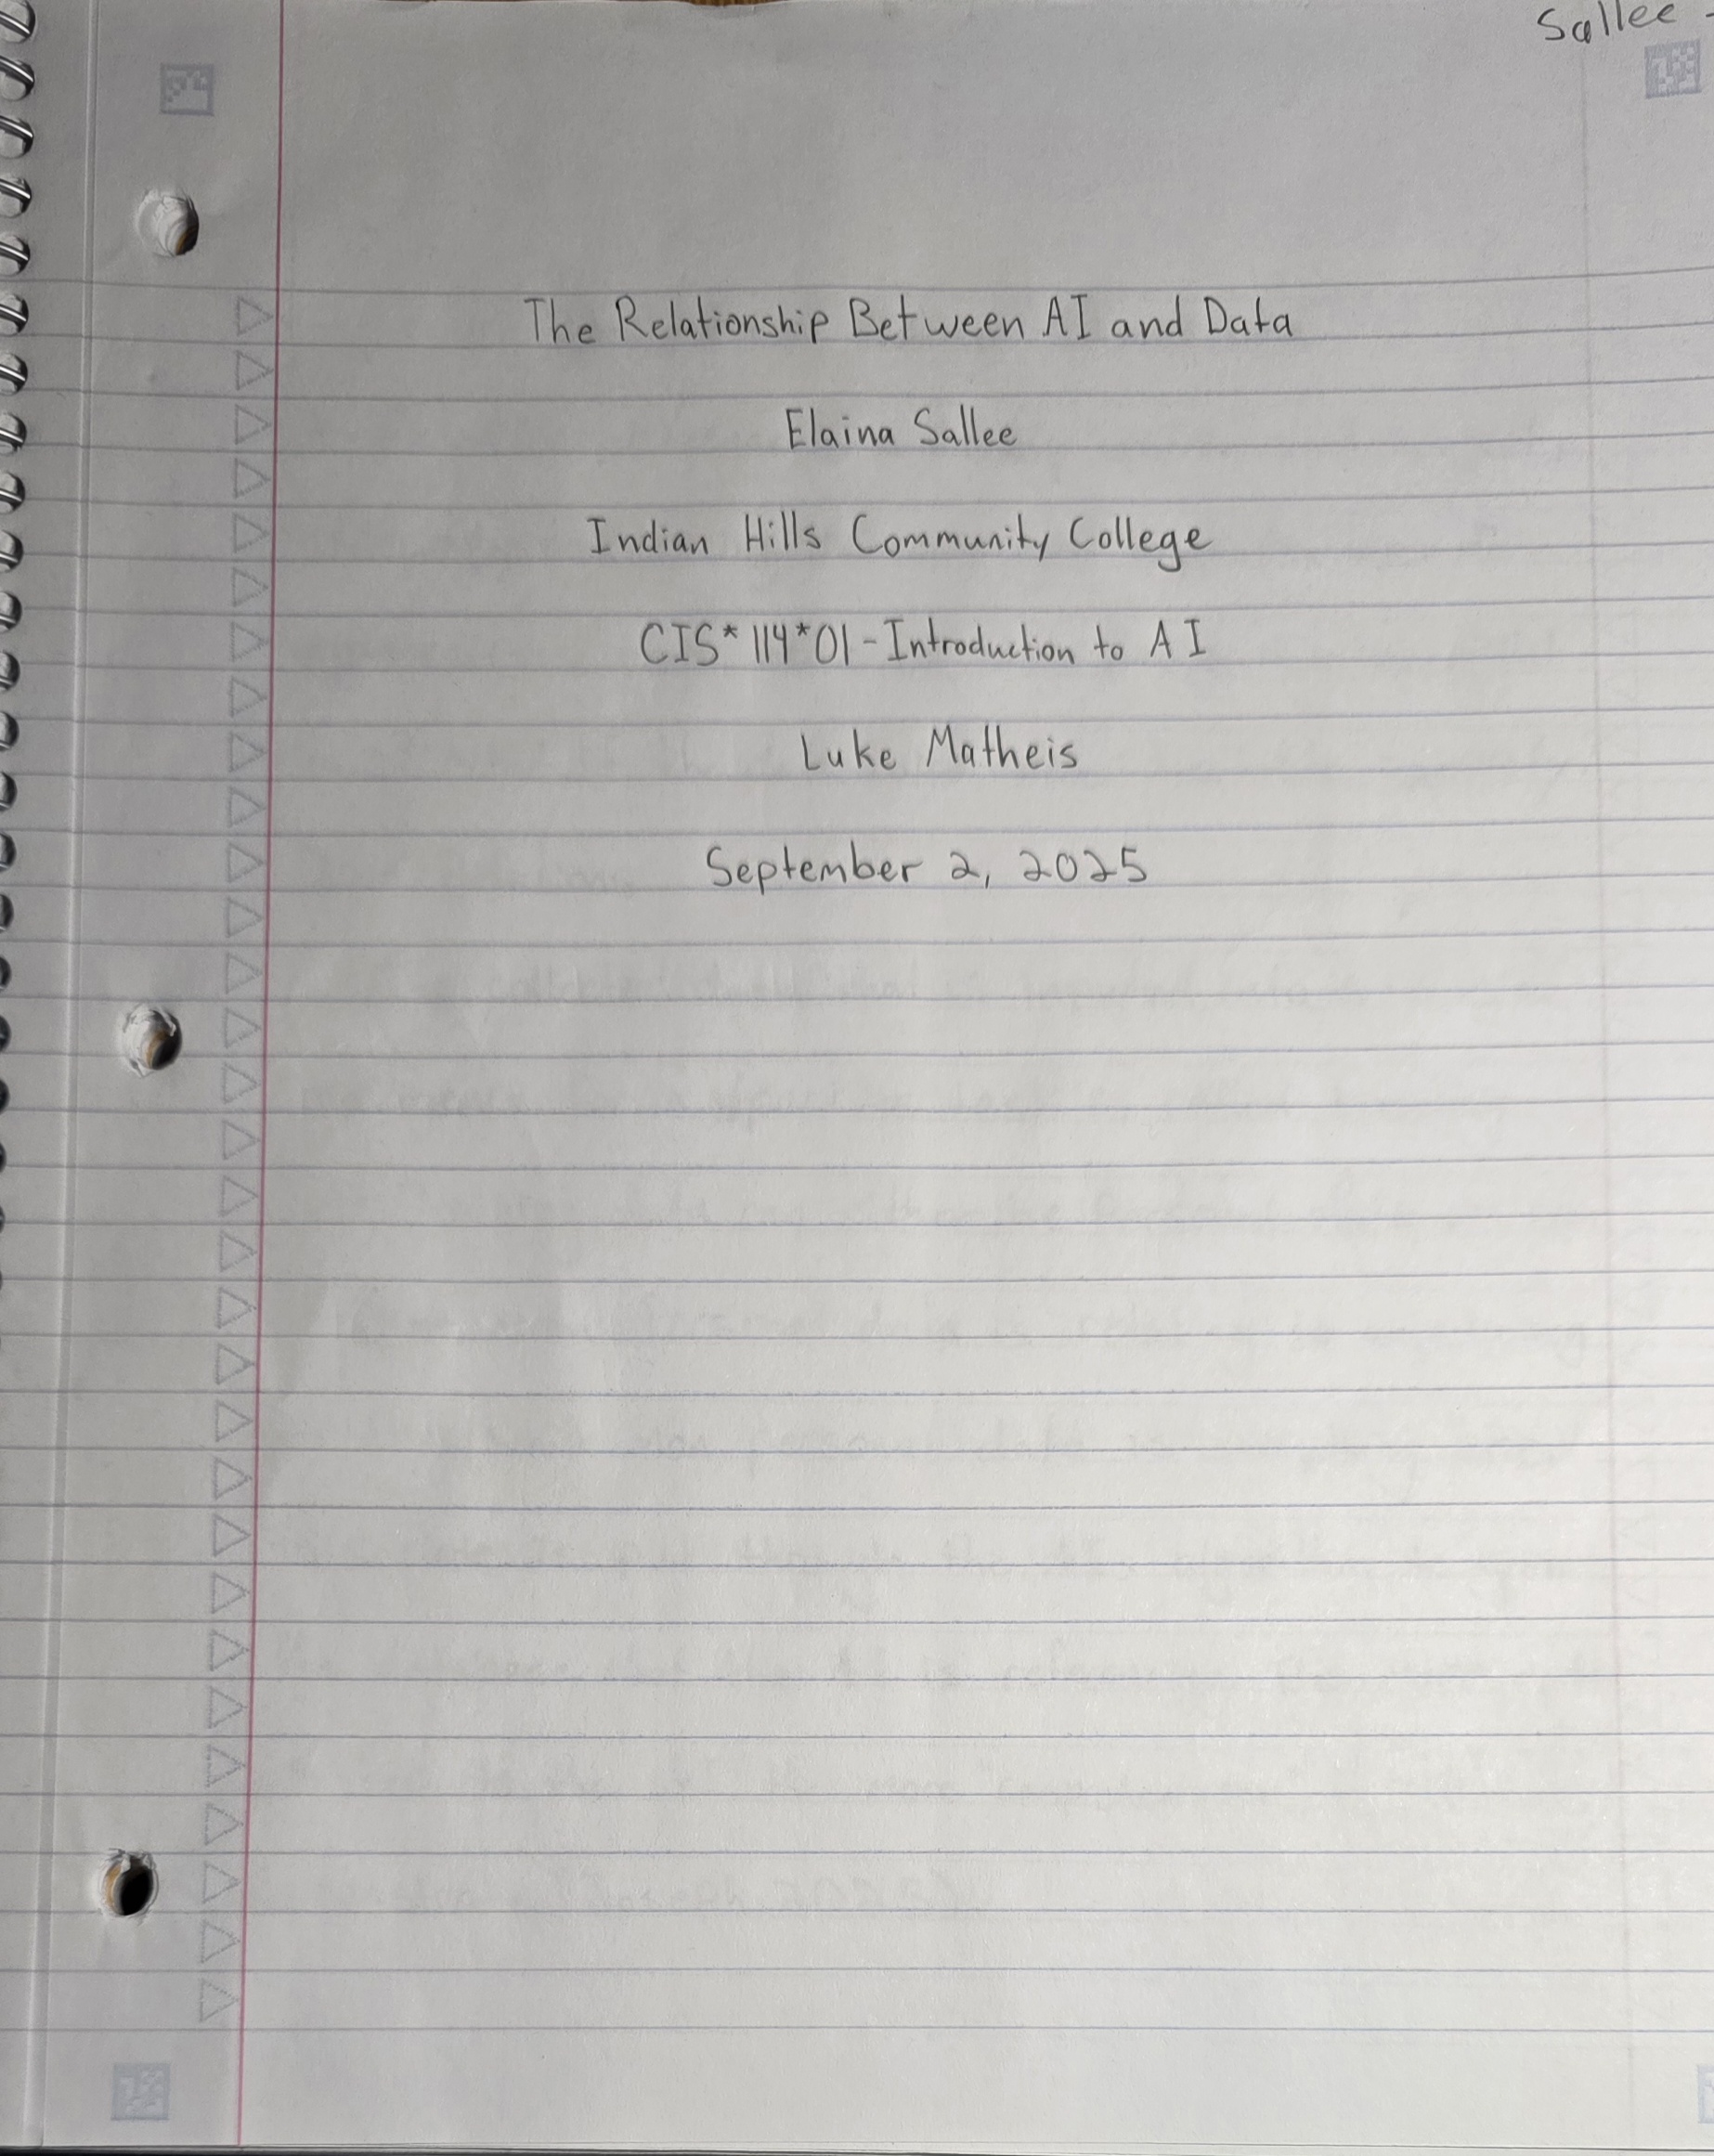 Sallee -
The Relationship Between AI and Data
Elaina Sallee
Indian Hills Community College
CIS*114*01-Introduction to AI
Luke Matheis
September 2, 2025